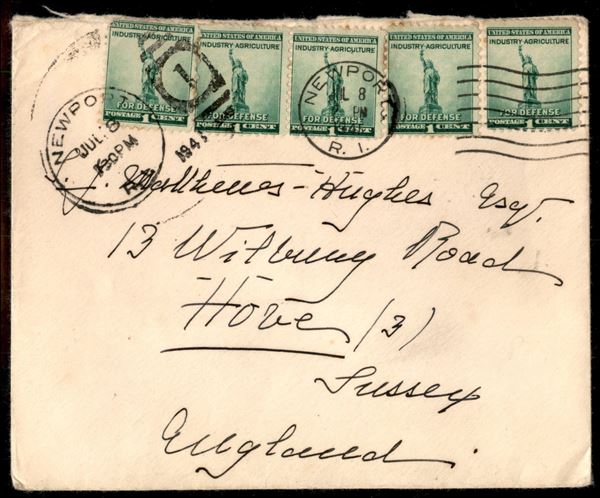 UNITED STATES OF AMERICA
INDUSTRY-AGRICULTURE
FOR DEFENSE
POSTAGE 1 CENT
UNITED STATES OF AMERICA
INDUSTRY-AGRICULTURE
FOR DEFENSE
POSTAGE 1 CENT
UNITED STATES OF AMERICA
INDUSTRY-AGRICULTURE
FOR DEFENSE
POSTAGE 1 CENT
UNITED STATES OF AMERICA
INDUSTRY-AGRICULTURE
FOR DEFENSE
POSTAGE 1 CENT
UNITED STATES OF AMERICA
INDUSTRY-AGRICULTURE
FOR DEFENSE
POSTAGE 1 CENT
1
NEWPORT
JUL 8
PM
194
NEWPORT
8
PM
R. I.
J. Matthews-Hughes Esq.
13 Wilbury Road
Hove (3)
Sussex
England.